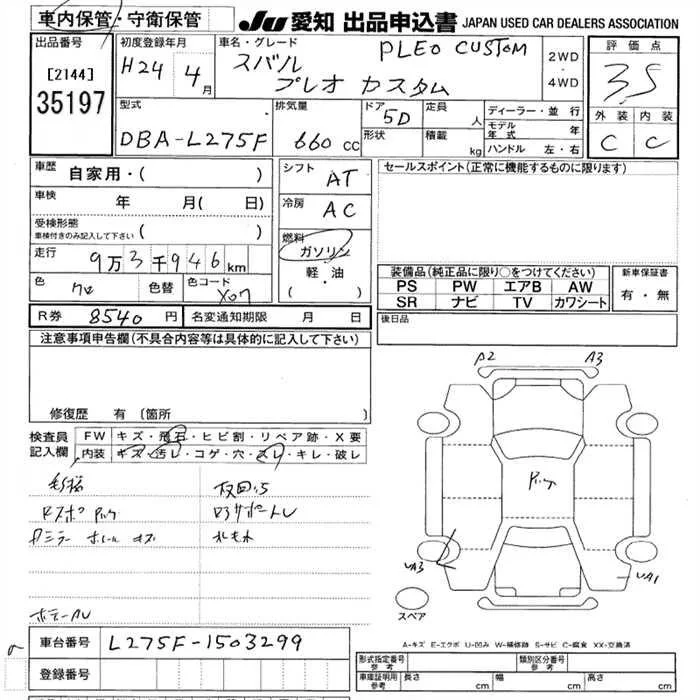 車内保管・守衛保管
JU 愛知 出品申込書 JAPAN USED CAR DEALERS ASSOCIATION
出品番号
[2144]
35197
初度登録年月
H24 4月
車名・グレード
PLEO CUSTOM
スバル
プレオ カスタム
2WD
・
4WD
評価点
3.5
外装 内装
C C
型式
DBA-L275F
排気量
660 cc
ドア
5D
形状
定員
人
積載
kg
ディーラー・並 行
モデル年式 年
ハンドル 左・右
車歴
自家用・( )
車検
年 月( 日)
受検形態
車検付きのみ記入して下さい ( )
走行
9万3千946km
色
色替
色コード
X07
シフト
AT
冷房
AC
燃料
ガソリン
軽・油
( ・ )
セールスポイント(正常に機能するものに限ります)
装備品(純正品に限り○をつけてください)
PS PW エアB AW
SR ナビ TV カワシート
新車保証書
有・無
後日品
R券 8540 円 名変通知期限 月 日
注意事項申告欄(不具合内容等は具体的に記入して下さい)
修復歴 有 〔箇所 〕
検査員
記入欄
FW キズ・飛石・ヒビ割・リペア跡・X要
内装 キズ・汚レ・コゲ・穴・スレ・キレ・破レ
A2 A3
UA3
UA1
スペア
A-キズ E-エクボ U-凹み W-補修跡 S-サビ C-腐食 XX-交換済
車台番号 L275F-1503299
登録番号
形式指定番号
参考
類別区分番号
参考
車庫証明用
参考
長さ cm 幅 cm 高さ cm